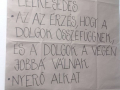 LELKESEDÉS
• AZ AZ ÉRZÉS, HOGY A
DOLGOK ÖSSZEFÜGGNEK,
ÉS A DOLGOK A VÉGÉN
JOBBÁ VÁLNAK
• NYERŐ ALKAT